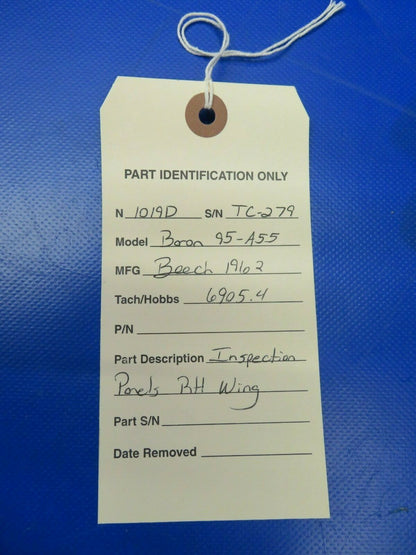 PART IDENTIFICATION ONLY
N 1019D S/N TC-279
Model Baron 95-A55
MFG Beech 1962
Tach/Hobbs 6905.4
P/N
Part Description Inspection
Panels RH Wing
Part S/N
Date Removed